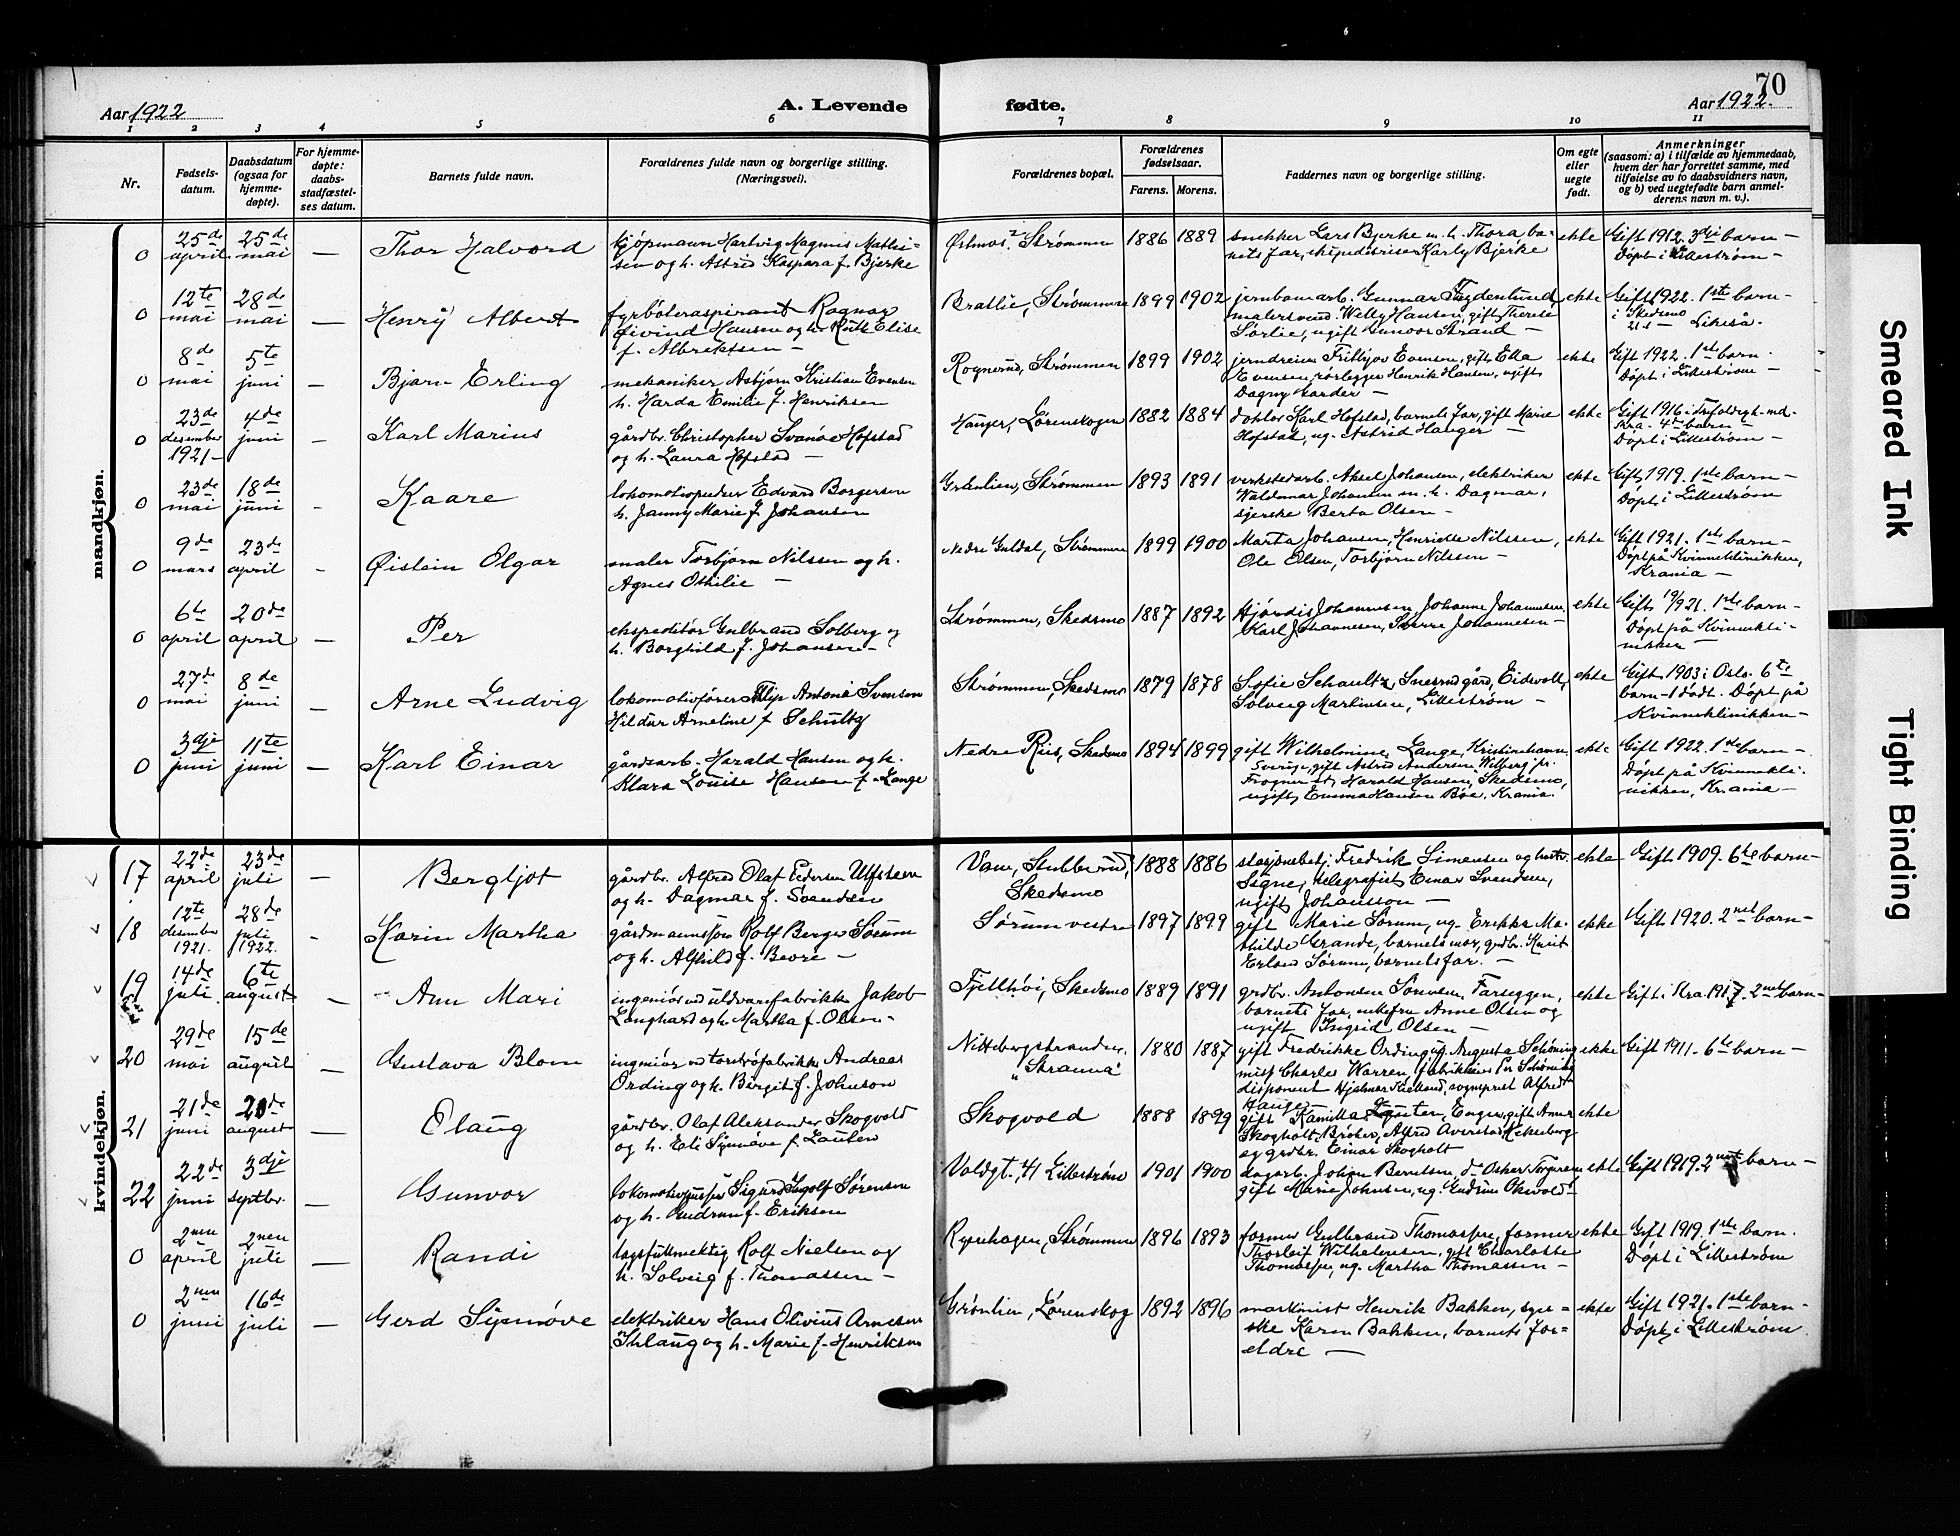 70
Aar 1922 A. Levende fødte. Aar 1922.
1 2 3 4 5 6 7 8 9 10 11
Nr.
Fødsels-
datum.
Daabsdatum
(ogsaa for
hjemme-
døpte).
For hjemme-
døpte:
daabs-
stadfæstel-
ses datum.
Barnets fulde navn.
Forældrenes fulde navn og borgerlige stilling.
(Næringsvei).
Forældrenes bopæl.
Forældrenes
fødselsaar.
Farens. Morens.
Faddernes navn og borgerlige stilling.
Om egte
eller
uegte
født.
Anmerkninger
(saasom: a) i tilfælde av hjemmedaab,
hvem der har forrettet samme, med
tilføielse av to daabsvidners navn,
og b) ved uegtefødte barn anmel-
derens navn m. v.).
mandkjøn.
0
25de
april
25de
mai
—
Thor Halvord
kjøpmann Hartvig Magnus Mathi-
sen og h. Astrid Kaspara f. Bjerke
Østmos, Strømmen
1886 1889
snekker Lars Bjerke m. h. Thora, bar-
nets far, ekspeditrise Karly Bjerke
ekte
Gift 1912. 3dje barn —
Døpt i Lillestrøm —
0
12te
mai
28de
mai
—
Henry Albert
fyrbøteraspirant Ragnar
Øivind Hansen og h. Ruth Elise
f. Albrektsen —
Bratlie, Strømmen
1899 1902
jernbanearb. Gunnar
malersvend Willy Hansen, gift Therese
Sørlie, ugift Gunvor Strand —
ekte
Gift 1922. 1ste barn —
i Skedsmo
Likeså.
0
8de
mai
5te
juni
—
Bjarn Erling
mekaniker Asbjørn Kristian Evensen
h. Harda Emilie f. Henriksen
Rognerud, Strømmen
1899 1902
jerndreier Frithjov Evensen, gift Ella
Evensen, rørlegger Henrik Hansen, ugift
Dagny Harder —
ekte
Gift 1922. 1ste barn.
Døpt i Lillestrøm —
0
23de
desember
1921 —
4de
juni
—
Karl Marius
gårdbr. Christopher Svanøe Hofstad
og h. Laura Hofstad —
Hanger, Lørenskogen
1882 1884
doktor Karl Hofstad, barnets far, gift Marie
Hofstad, ug. Astrid Hanger —
ekte
Gift 1916 i
Kra. 4de barn —
Døpt i Lillestrøm —
0
23de
mai
18de
juni
-
Kaare
lokomotivpudser Edvard Borgersen
h. Janny Marie f. Johansen
Grønlien, Strømmen
1893 1891
verkstedarb. Aksel Johansen, elektriker
Waldemar Johansen m. h. Dagmar,
syerske Berta Olsen —
ekte
Gift 1919. 1ste barn —
Døpt i Lillestrøm
0
9de
mars
23de
april
-
Øistein Olgar
maler Torbjørn Nilssen og h.
Agnes Othilie —
Nedre Guldal, Strømmen
1899 1900
Marta Johansen, Henriette Nilssen,
Ole Olsen, Torbjørn Nilssen —
ekte
Gift 1921. 1ste barn —
Døpt på Kvinneklinikken,
Krania —
0
6te
april
20de
april
—
Per
ekspeditør Gulbrand Solberg og
h. Borghild f. Johansen —
Strømmen, Skedsmo
1887 1892
Hjørdis Johannesen, Johanne Johannesen,
Karl Johannesen, Sverre Johannesen —
ekte
Gift 1921. 1ste barn —
Døpt på Kvinnekli-
nikken —
0
27de
mai
8de
juni
—
Arne Ludvig
lokomotivfører Filip Antonie Svenson
Hildur Arneline f. Schultz
Strømmen, Skedsmo
1879 1878
Sofie Schaultz, Snerudgård, Eidsvoll,
Solveig Martinsen, Lillestrøm —
ekte
Gift 1903 i Oslo. 6te
barn - 1 dødt. Døpt på
Kvinneklinikken —
0
3dje
juni
11te
juni
—
Karl Einar
gårdsarb. Harald Hansen og h.
Klara Louise Hansen f. Lange
Nedre Riis, Skedsmo
1894 1899
gift Wilhelmine Lange, Kristinehavn,
Sverige, gift Astrid Andersen Wilberg pr.
Frogner st., Harald Hansen, Skedsmo,
ugift Emma Hansen Bøe, Krania.
ekte
Gift 1922. 1ste barn —
Døpt på Kvinnekli-
nikken, Krania —
kvindekjøn.
17
22de
april
23de
juli
—
Bergljot
gårdbr. Alfred Olaf Pedersen Ulfsteen
og h. Dagmar f. Svendsen
Vane, Stubberud,
Skedsmo
1888 1886
stasjonsbetj. Fredrik Simensen og hustr.
Signe, telegrafist Einar Svendsen,
ugift Johansson —
ekte
Gift 1909. 6te barn —
18
12te
desember
1921.
28de
juli
1922.
-
Karin Martha
gårdmannssøn Rolf Berger Sørum
og h. Alfhild f. Bevre —
Sørum vestre
1897 1899
gift Marie Sørum, ug. Erikke Ma-
thilde Grande, barnets mor, grdbr. Knut
Erland Sørum, barnets far. —
ekte
Gift 1920. 2net barn —
19
14de
juli
6te
august
—
Ann Mari
ingeniør ved uldvarefabrikk Jakob
Langhard og h. Martha f. Olsen —
Fjellhøi, Skedsmo
1889 1891
grdbr. Antonsen
barnets far, enkefru Anne Olsen og
ugift Ingrid Olsen —
ekte
Gift i Kra. 1917. 2net barn —
20
29de
mai
15de
august
—
Gustava Blom
ingeniør ved Andreas
Ording og h. Birgit f. Johnson
Nittebergstranden,
„Stranna"
1880 1887
gift Fredrikke Ording, ug. Augusta Schöning
miss Charles Warren, fabrikeier Per Schöning
disponent Hjalmar Kielland, sogneprest Alfred
Hauge —
ekte
Gift 1911. 6te barn —
21
21de
juni
20de
august
—
Olaug
gårdbr. Olaf Aleksander Skogvold
og h. Eli Synnøve f. Lauten
Skogvold
1888 1899
gift Kamilla Lauten, Enger, gift Anna
Skogholt, Bråter, Alfred
og grdbr. Einar Skogholt
ekte
22
22de
juni
3dje
septbr.
—
Gunvor
lokomotivpusser Sigurd Ingolf Sørensen
og h. Gudrun f. Eriksen
Voldgt. 41 Lillestrøm
1901 1900
dagarb. Johan Berntsen, do Oskar Torgersen
gift Marie Johnsen, ug. Gudrun Okvold
ekte
Gift 1919. 2net barn —
0
2nen
april
2nen
juli
—
Randi
lagsfullmektig Rolf Nielsen og
h. Solveig f. Thomassen —
Ryenhagen, Strømmen
1896 1893
former Gulbrand Thomassen, former
Thorleif Wilhelmsen, gift Charlotte
Thomassen, ug. Martha Thomassen —
ekte
Gift 1919. 1ste barn.
Døpt i Lillestrøm
0
2nen
juni
16de
juli
—
Gerd Synnøve
elektriker Hans Olivius Arnesen
Ihlaug og h. Marie f. Henriksen
Grønlien, Lørenskog
1892 1896
maskinist Henrik Bakken, syer-
ske Karen Bakken, barnets for-
eldre —
ekte
Gift 1921. 1ste barn —
Døpt i Lillestrøm
Smeared Ink
Tight Binding